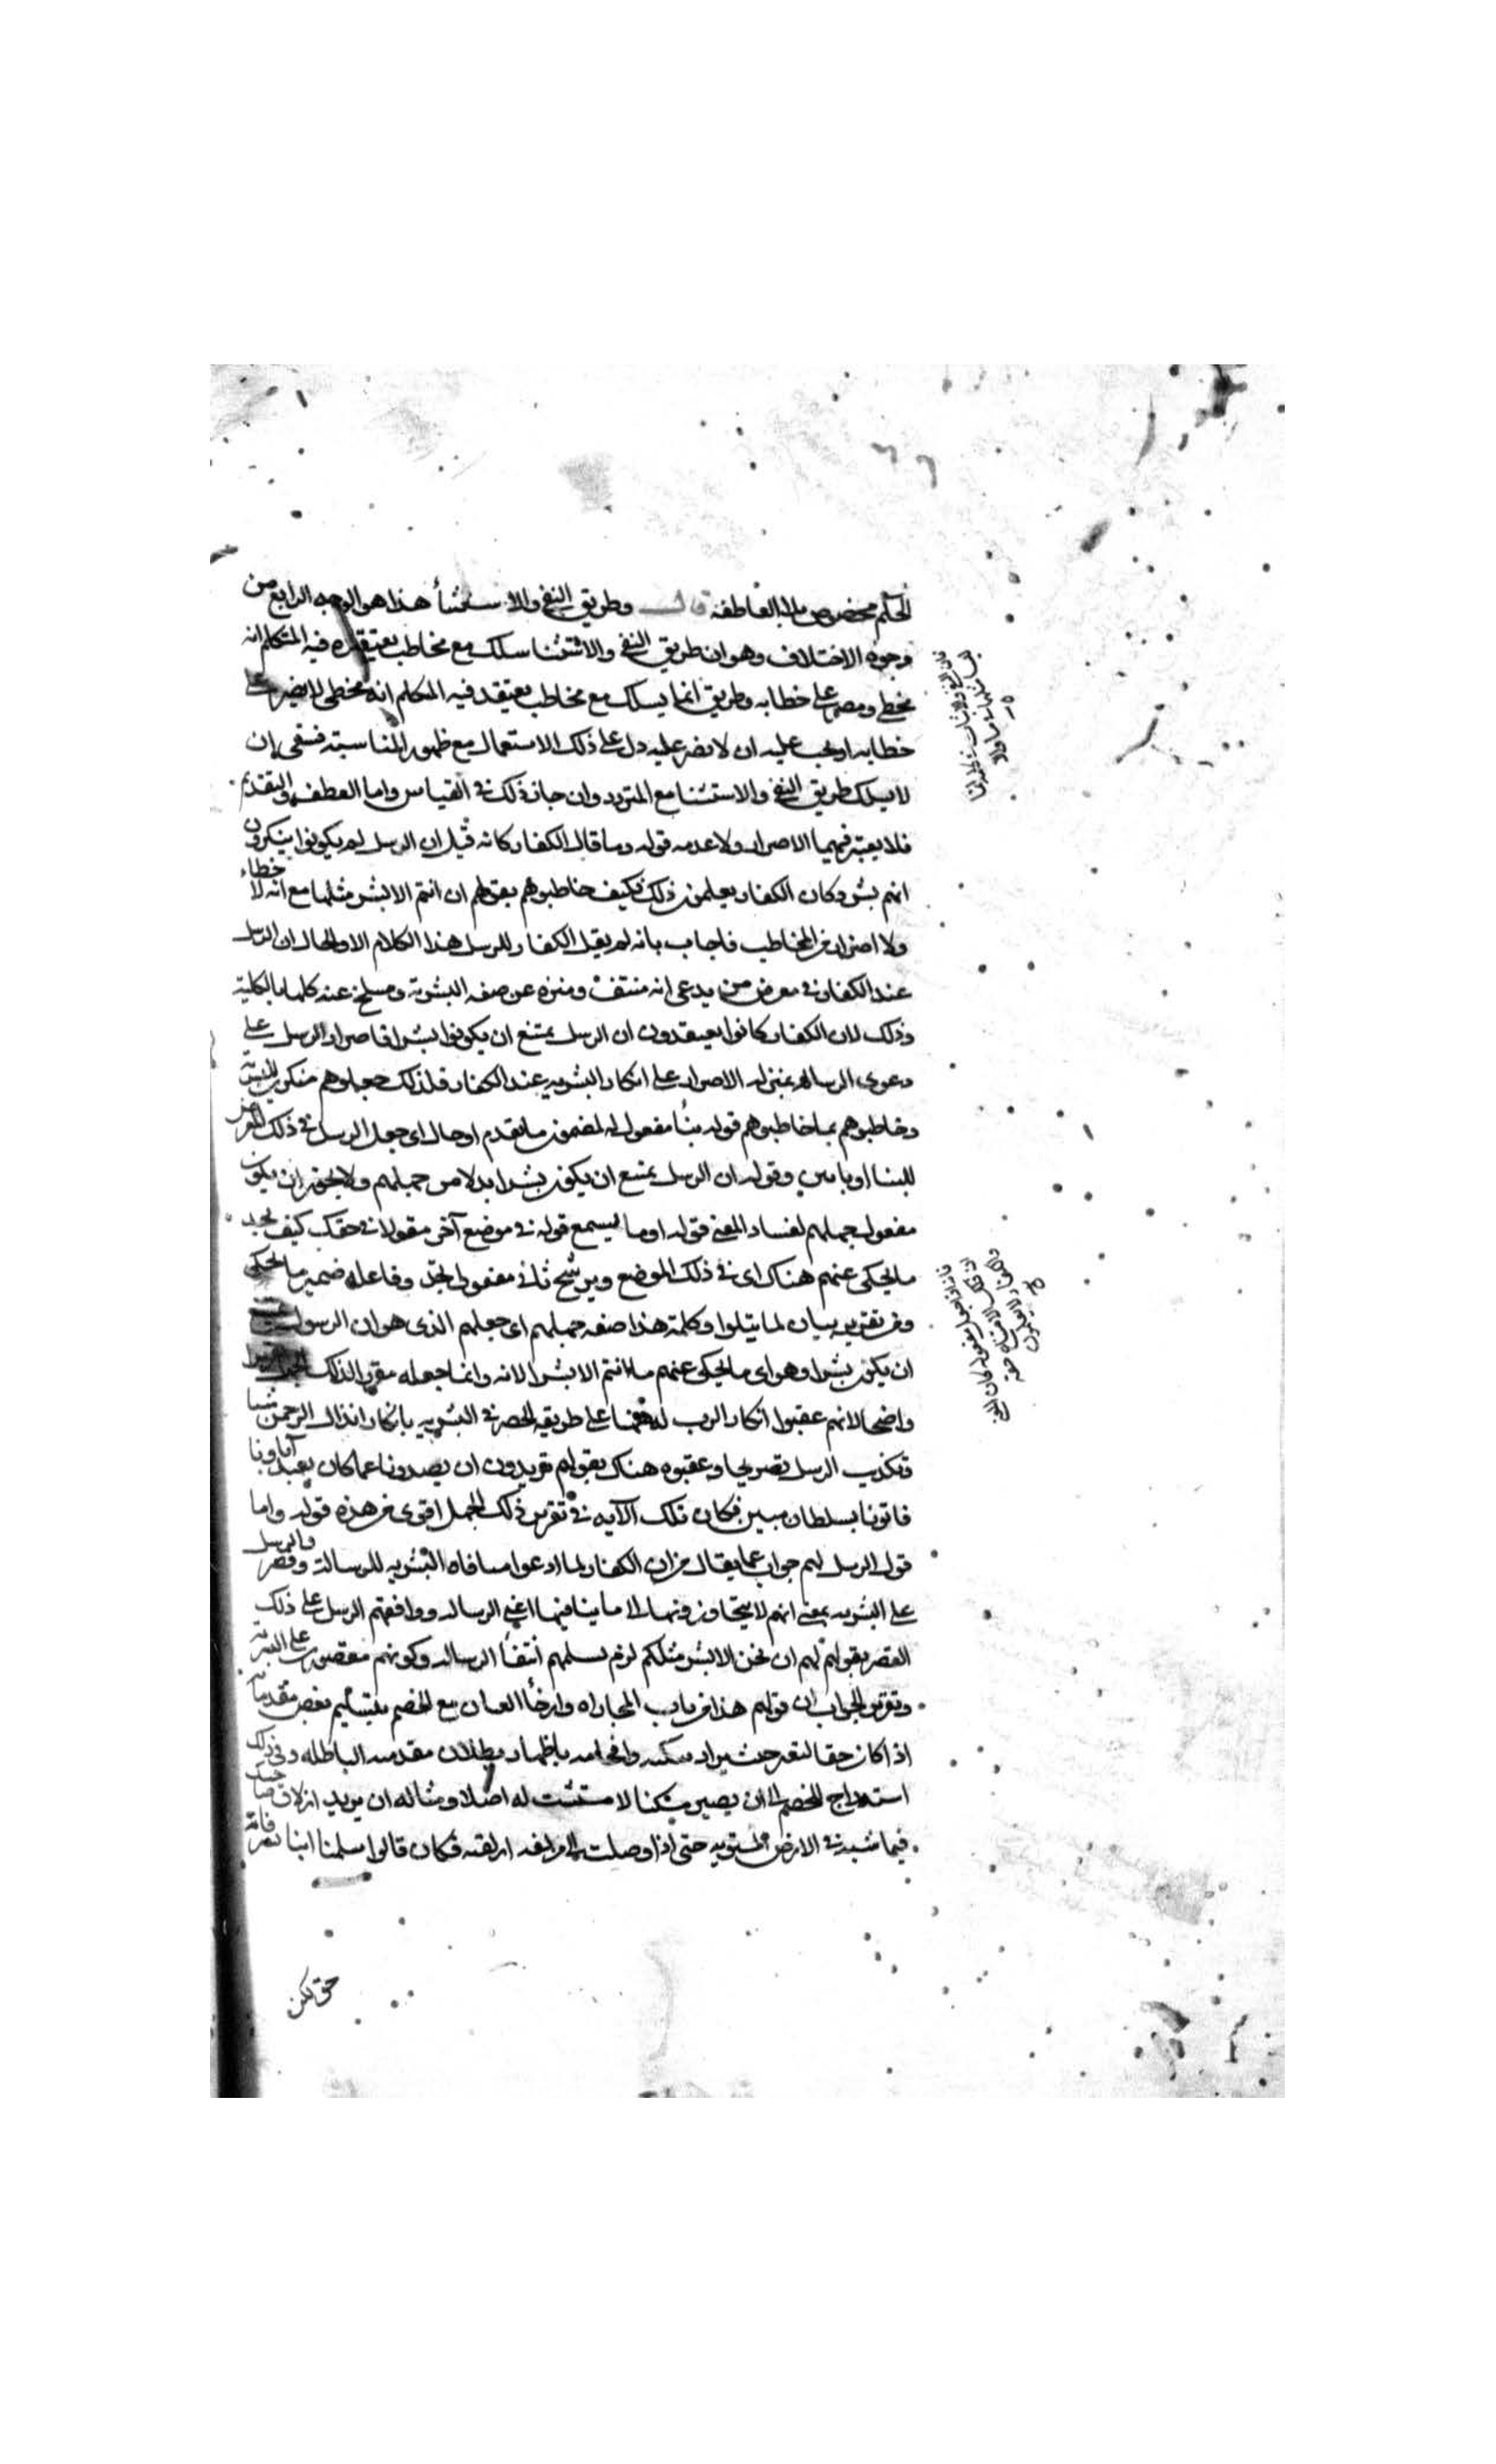 الحكم مخصوص بلا العاطفة قال وطريق النفي والاستثنأ هذا هو الوجه الرابع من
وجوه الاختلاف وهو ان طريق النفي والاستثنا سلك مع مخاطب يعتقد فيه المتكلم انه
مخطى ومصر على خطابه وطريق انما يسلك مع مخاطب يعتقد فيه المتكلم انه مخطى لا يصر على
خطابه او يجب عليه ان لا يصر عليه دل على ذلك الاستعمال مع ظهور المناسبة فينبغي ان
لا يسلك طريق النفي والاستثنا مع المتردد وان جاز ذلك في القياس واما العطف والتقديم
فلا يعتبر فيهما الاصرار ولا عدمه قوله وما قال الكفار كانه قيل ان الرسل لم يكونوا ينكرون
انهم بشر وكان الكفار يعلمون ذلك فكيف خاطبوهم بقولهم ان انتم الا بشر مثلنا مع انه لا خطاء
ولا اصرار من المخاطب فاجاب بانه لم يقل الكفار للرسل هذا الكلام الا والحال ان الرسل
عند الكفار في معرض من يدعى انه منتف ومنزه عن صفه البشرية ومنسلخ عنه كلما بالكلية
وذلك لان الكفار كانوا يعتقدون ان الرسل يمتنع ان يكونوا بشرا فاصرار الرسل على
دعوى الرساله بمنزله الاصرار على انكار البشريه عند الكفار فلذلك جعلوهم منكرين للبشرية
وخاطبوهم بما خاطبوهم قوله بنأ مفعول له لمضمون ما يقدم او حال اى جعل الرسل في ذلك المعرض
للبنا او بانين وقوله ان الرسل يمتنع ان يكون بشرا بدلا من جهلهم ولا يجوز ان يكون
مفعول جهلهم لفساد المعنى قوله او ما يسمع قوله في موضع آخر مقولا في حقك كيف تجد
ما يحكى عنهم هناك اى في ذلك الموضع ويرشح ثاني مفعولى تجد وفاعله ضمير ما يحكى
ومن تقريره بيان لما يتلوا وكلمة هذا صفه جهلهم اى جهلهم الذى هو ان الرسول يمتنع
ان يكون بشرا وهو اى ما يحكى عنهم ما انتم الا بشر الانه وانما جعله مقررا لذلك الجهل
واضحا لانهم عقبوا انكار الرب ههنا على طريقه الحصر في البشريه بانكار انزال الرحمن شيا
وتكذيب الرسل تصريحا وعقبوه هناك بقولهم تريدون ان يصدونا عما كان يعبد آباونا
فاتونا بسلطان مبين فكان تلك الآيه في تقرير ذلك الجهل اقوى من هذه قوله واما
قول الرسل لهم جواب عما يقال من ان الكفار لما ادعوا منافاه البشريه للرسالة وقصر والرسل
على البشريه بمعنى انهم لا يتجاوزونها الى ما ينافيها اعني الرساله ووافقهم الرسل على ذلك
القصر بقولهم لهم ان نحن الا بشر مثلكم لزم تسلمهم انتفأ الرساله وكونهم مقصورين على البشرية
وتقرير الجواب ان قولهم هذا من باب المجاراه وارخأ العنان مع الخصم بتسليم بعض مقدماته
اذا كان حقا لتعثر حيث يراد تبكيته وافحامه باظهار بطلان مقدمته الباطله وفي ذلك
استدراج للخصم الى ان يصير مبكتا لا متشبث له اصلا ومثاله ان يريد ازلاق صاحبك
فيماشيه في الارض المستويه حتى اذا وصلت الى مزلفه ازلقته فكان قالوا سلمنا اننا
حتى تكن